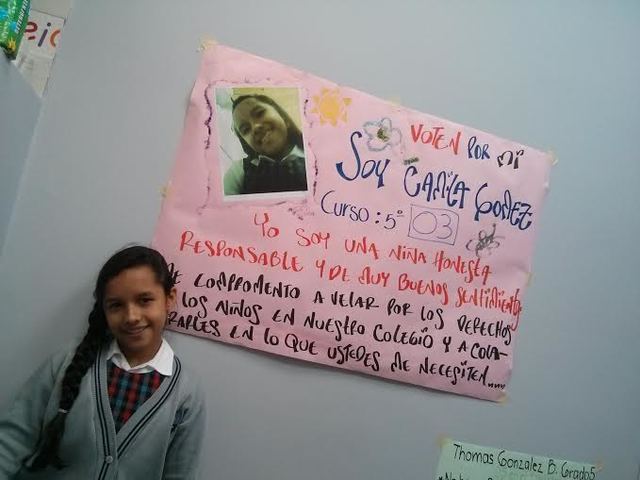 VOTEN POR MI
SOY CAMILA GOMEZ
Curso: 5° 03
YO SOY UNA NIÑA HONESTA
RESPONSABLE Y DE MUY BUENOS SENTIMIENTOS
ME COMPROMENTO A VELAR POR LOS DERECHOS
LOS NIÑOS EN NUESTRO COLEGIO Y A COLA-
RARLES EN LO QUE USTEDES ME NECESITEN....
Thomas Gonzalez B. Grado5